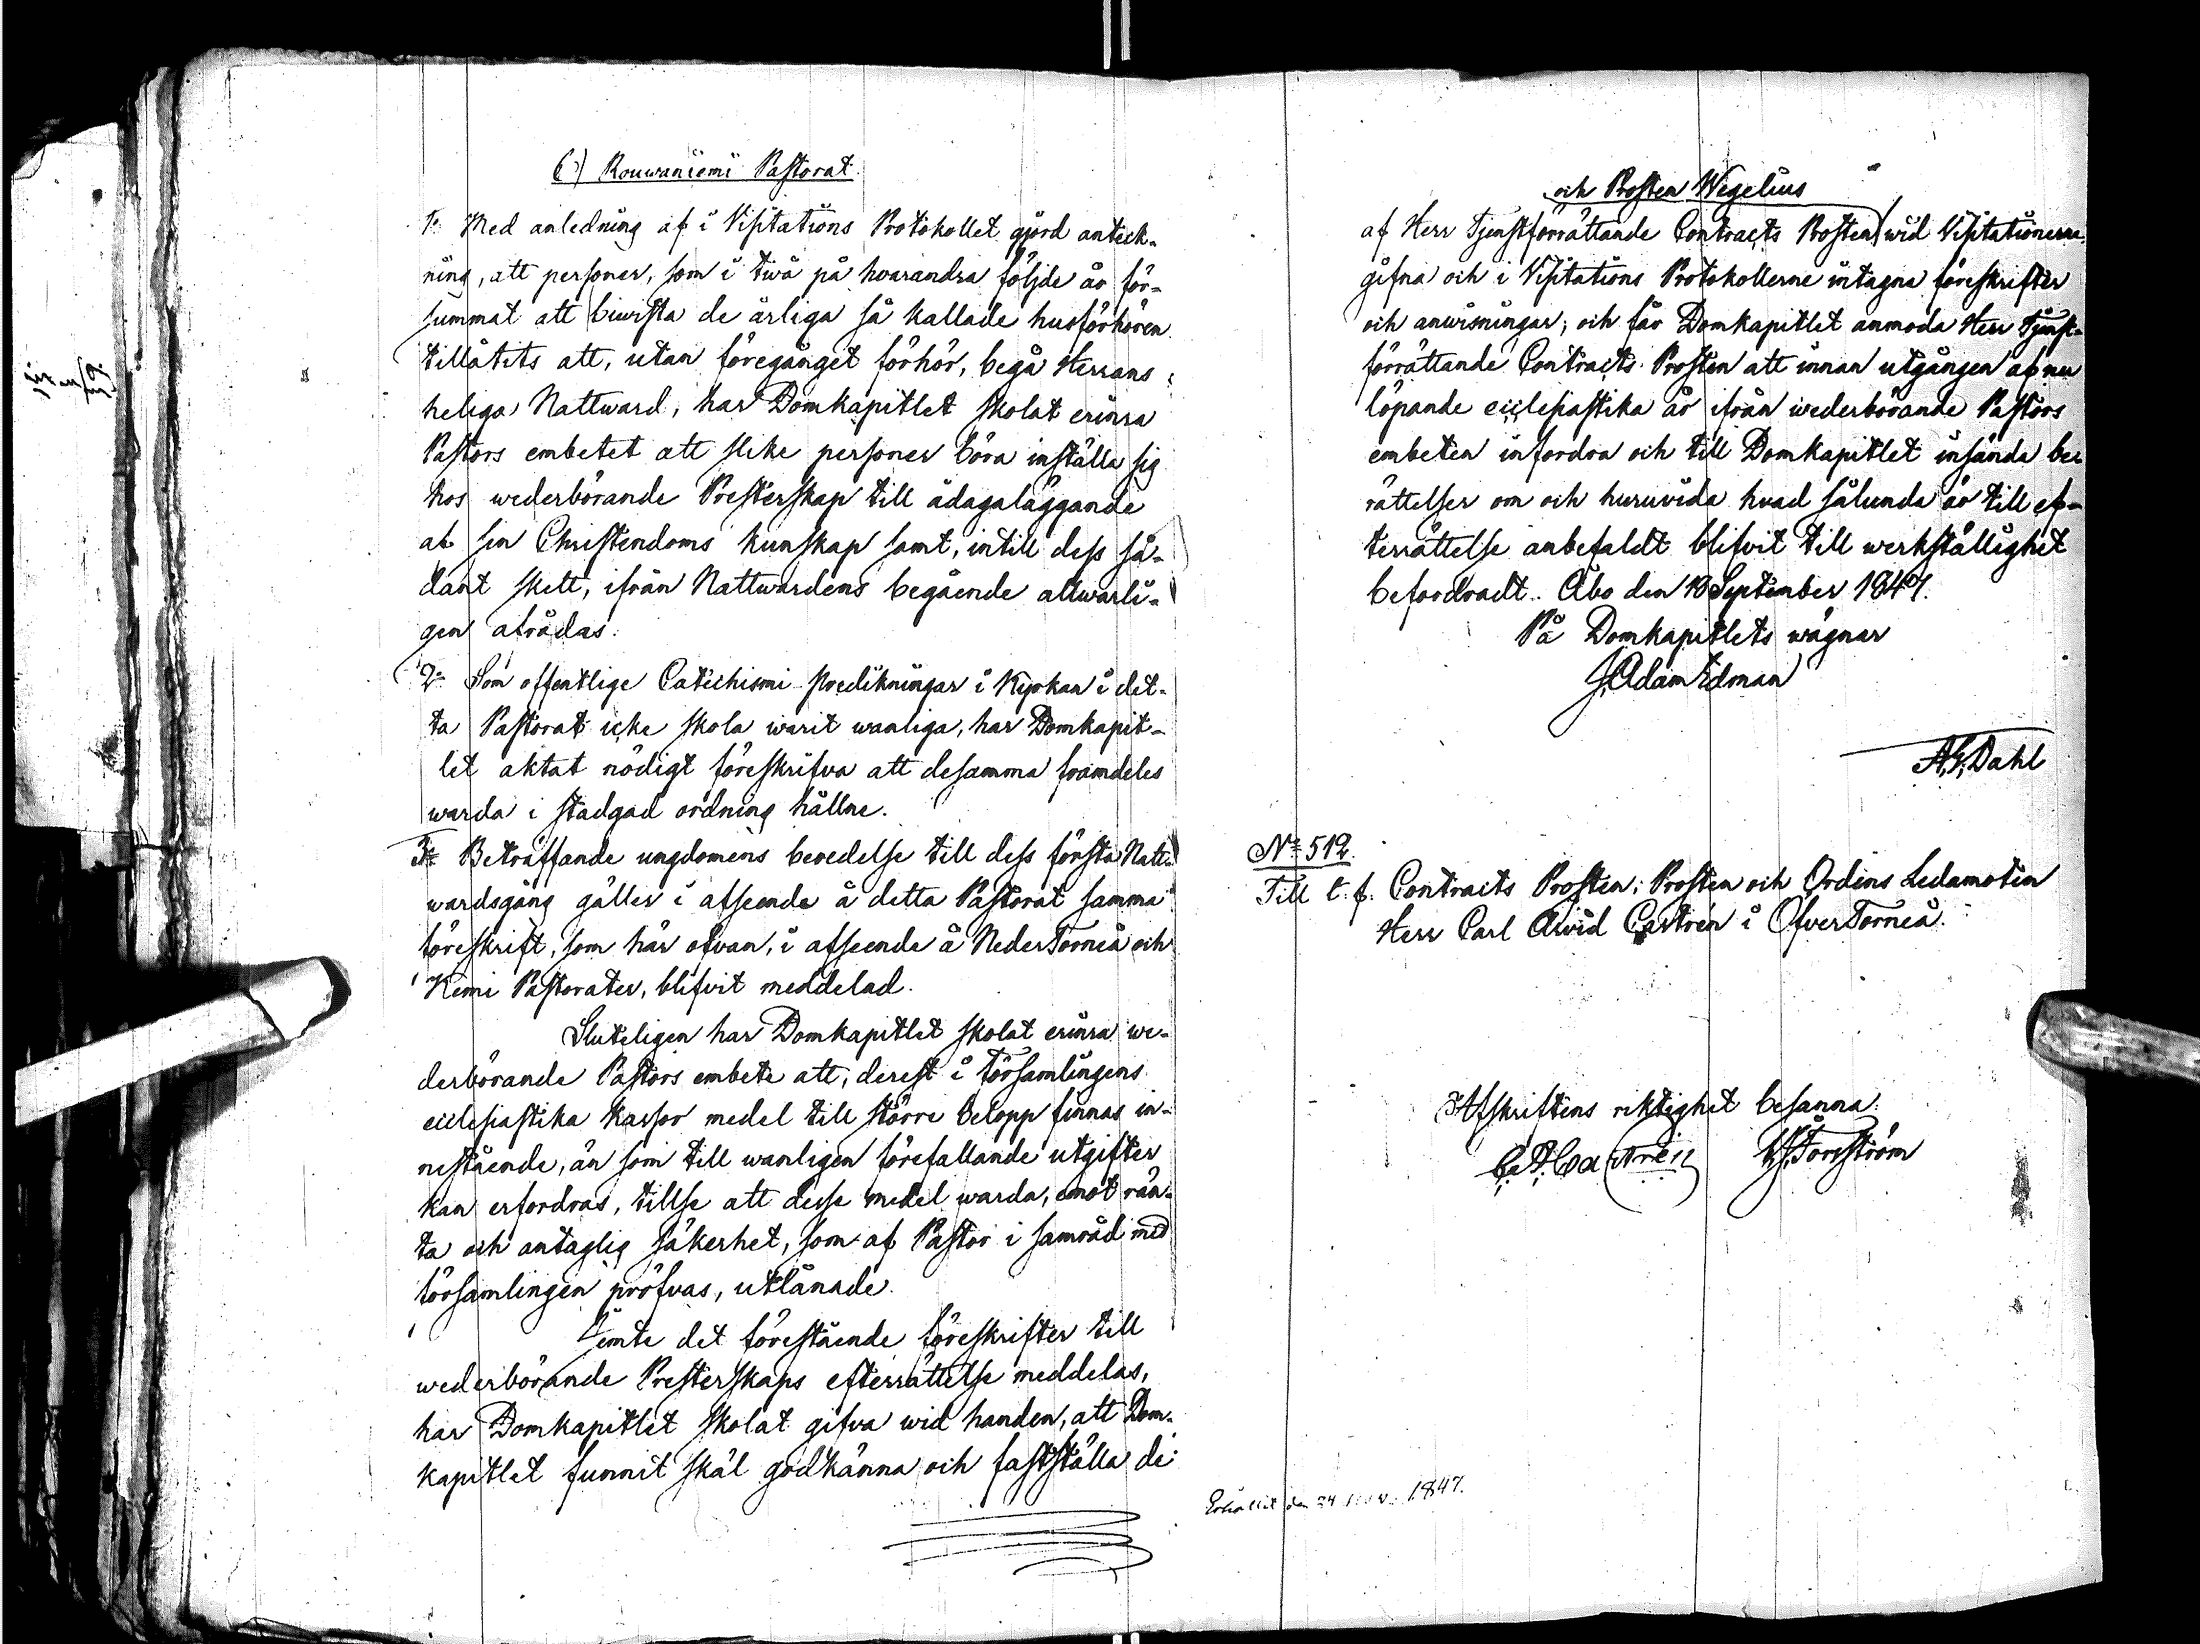 6) Rouwaniemi Pastorat.
1o Med anledning af i Visitations Protokollet gjord anteck-
ning, att personer, som i twå på hvarandra följde år för-
summat att biwista de årliga så kallade husförhören
tillåtits att, utan föregånget förhör, begå Herrans
heliga Nattward, har Domkapitlet skolat erinra
Pastors embetet att slike personer böra inställa sig
hos wederbörande Presterskap till ådagaläggande
af sin Christendoms kunskap samt, intill dess så-
dant skett, ifrån Nattwardens begående allwarli-
gen afrådas.
2o Som offentlige Catechismi predikningar i Kyrkan i det-
ta Pastorat icke skola warit wanliga, har Domkapit-
let aktat nödigt föreskrifva att desamma framdeles
warda i stadgad ordning hållne.
3o Beträffande ungdomens beredelse till dess första Natt-
wardsgång gäller i afseende å detta Pastorat samma
föreskrift, som här ofvan, i afseende å NederTorneå och
Kemi Pastorater, blifvit meddelad.
Sluteligen har Domkapitlet skolat erinra we-
derbörande Pastors embete att, derest i församlingens
ecclesiastika kassor medel till större belopp finnas in-
nestående, än som till wanligen förefallande utgifter
kan erfordras, tillse att desse medel warda, emot rän-
ta och antaglig säkerhet, som af Pastor i samråd med
församlingen pröfvas, utlånade.
Jemte det förestående föreskrifter till
wederbörande Presterskaps efterrättelse meddelas,
har Domkapitlet skolat gifva wid handen, att Dom-
kapitlet funnit skäl godkänna och fastställa de
och Prosten Wegelius
af Herr Tjenstförrättande Contracts Prosten wid Visitationerne
gifna och i Visitations Protokollerne intagna föreskrifter
och anwisningar; och får Domkapitlet anmoda Herr Tjenst-
förrättande Contracts Prosten att innan utgången af nu
löpande ecclesiastika år ifrån wederbörande Pastors
embeten infordra och till Domkapitlet insända be-
rättelser om och huruvida hvad sålunda är till ef-
terrättelse anbefaldt blifvit till werkställighet
befordradt. Åbo den 18 September 1847.
På Domkapitlets wägnar
J. Adam Edman
A. G. Dahl
No 512.
Till t. f. Contracts Prosten, Prosten och Ordens Ledamoten
Herr Carl Arvid Castrén i ÖfverTorneå.
Afskriftens riktighet besanna:
C. A. Castrén
Forsström
Erhållit den 24 1847.